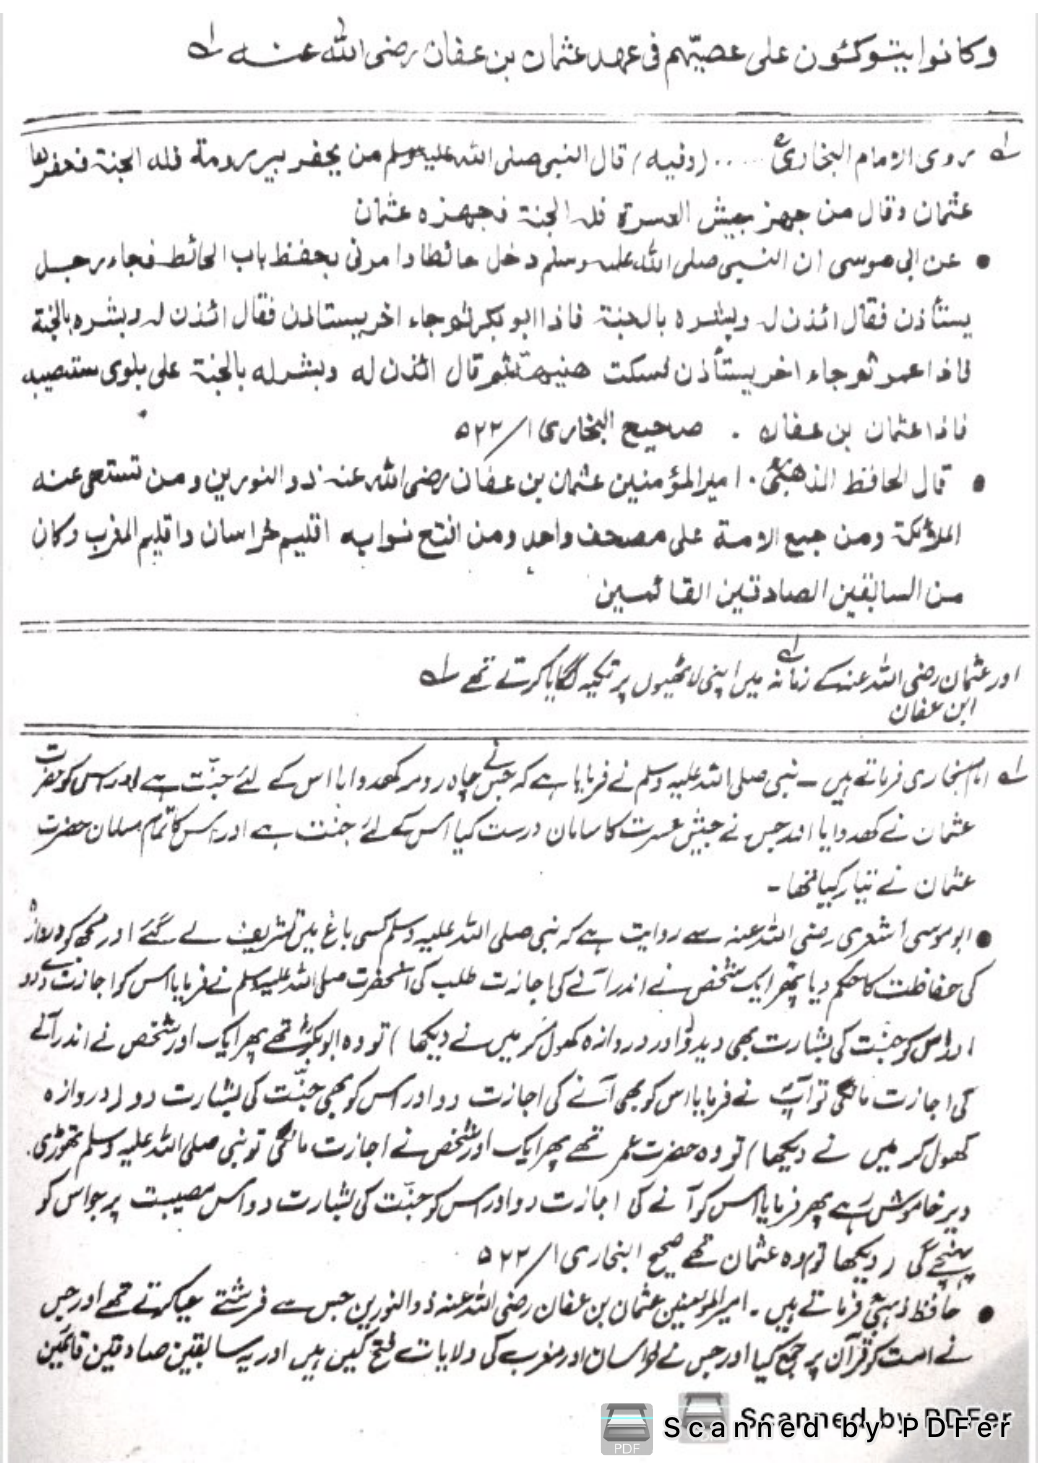 وكانوا يتوكئون على عصيّهم فى عهد عثمان بن عفان رضى الله عنه لـه
لـه روى الامام البخارىؒ ..... (وفيه) قال النبى صلى الله عليه وسلم من يحفر بير رومة فله الجنة فحفرها
عثمان وقال من جهز جيش العسرة فله الجنة فجهزه عثمان
● عن ابى موسى ان النبى صلى الله عليه وسلم دخل حائطا وامرنى بحفظ باب الحائط فجاء رجل
يستأذن فقال ائذن له وبشره بالجنة فاذا ابو بكر ثم جاء اخر يستاذن فقال ائذن له وبشره بالجنة
فاذا عمر ثم جاء اخر يستأذن فسكت هنيهة ثم قال ائذن له وبشرله بالجنة على بلوى ستصيبه
فاذا عثمان بن عفان . صحيح البخارى ١/ ٥٢٢
● قال الحافظ الذهبىؒ . امير المؤمنين عثمان بن عفان رضى الله عنه ذو النورين ومن تستحى عنه
الملائكة ومن جمع الامة على مصحف واحد ومن افتتح نوابه اقليم خراسان واقليم المغرب وكان
من السابقين الصادقين القائمين
اور عثمان رضی اللہ عنہ کے زمانہ میں اپنی لاٹھیوں پر تکیہ لگایا کرتے تھے لـه
ابن عفان
لـه امام بخاری فرماتے ہیں ۔ نبی صلی اللہ علیہ وسلم نے فرمایا ہے کہ جس نے چاہ رومہ کھدوایا اس کے لئے جنّت ہے اور اس کو حضرت
عثمان نے کھدوایا اور جس نے جیش عسرت کا سامان درست کیا اس کے لئے جنت ہے اور اس کا تمام سامان حضرت
عثمان نے تیار کیا تھا ۔
● ابو موسی اشعری رضی اللہ عنہ سے روایت ہے کہ نبی صلی اللہ علیہ وسلم کسی باغ میں تشریف لے گئے اور مجھ کو دروازہ
کی حفاظت کا حکم دیا پھر ایک شخص نے اندر آنے کی اجازت طلب کی آنحضرت صلی اللہ علیہ وسلم نے فرمایا اس کو اجازت دے دو
اور اس کو جنّت کی بشارت بھی دیدو اور دروازہ کھول کر میں نے دیکھا ) تو وہ ابوبکرؓ تھے پھر ایک اور شخص نے اندر آنے
کی اجازت مانگی تو آپؐ نے فرمایا اس کو بھی آنے کی اجازت دو اور اس کو بھی جنّت کی بشارت دو (دروازہ
کھول کر میں نے دیکھا ) تو وہ حضرت عمر تھے پھر ایک اور شخص نے اجازت مانگی تو نبی صلی اللہ علیہ وسلم تھوڑی
دیر خاموش رہے پھر فرمایا اس کو آنے کی اجازت دو اور اس کو جنّت کی بشارت دو اس مصیبت پر جو اس کو
پہنچے گی ( دیکھا تو) وہ عثمان تھے صحیح البخاری ١/ ٥٢٢
● حافظ ذہبیؒ فرماتے ہیں ۔ امیر المؤمنین عثمان بن عفان رضی اللہ عنہ ذو النورین جس سے فرشتے حیا کرتے تھے اور جس
نے امت کو قرآن پر جمع کیا اور جس نے خراسان اور مغرب کی ولایات فتح کیں ہیں اور یہ سابقین صادقین قائمین
Scanned by PDFer
Scanned by PDFer
PDF